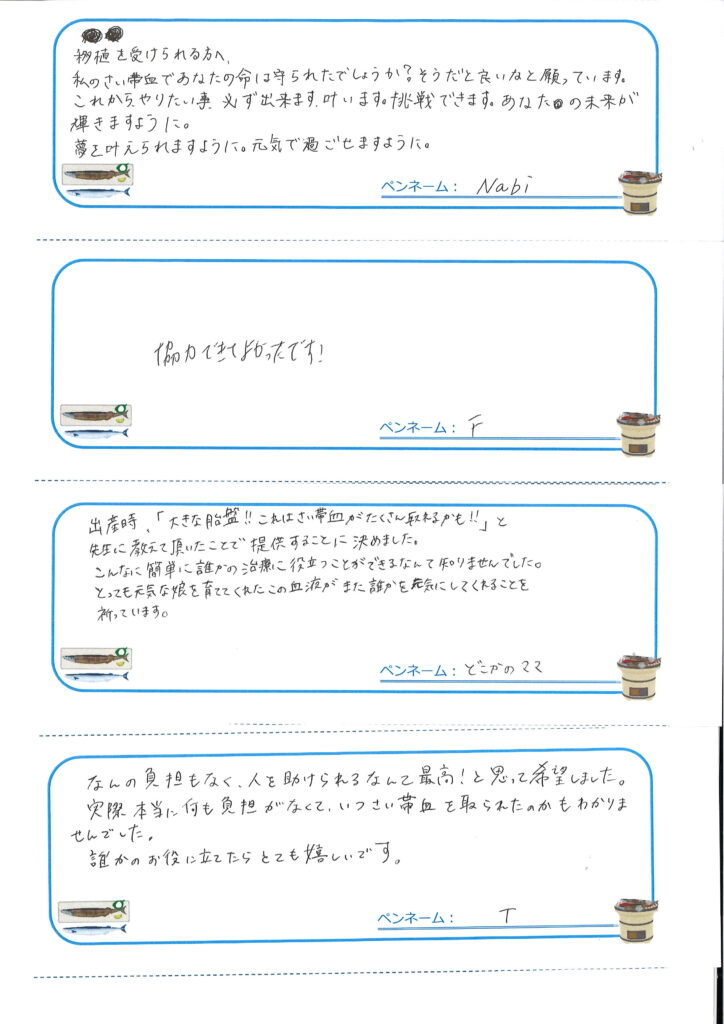 移植を受けられる方へ、
私のさい帯血であなたの命は守られたでしょうか?そうだと良いなと願っています。
これから、やりたい事 必ず出来ます、叶います。挑戦できます。あなたの未来が
輝きますように。
夢を叶えられますように。元気で過ごせますように。
ペンネーム： Nabi
協力できてよかったです!
ペンネーム： F
出産時、「大きな胎盤!!これはさい帯血がたくさん取れるかも!!」と
先生に教えて頂いたことで提供することに決めました。
こんなに簡単に誰かの治療に役立つことができるなんて知りませんでした。
とっても元気な娘を育ててくれたこの血液がまた誰かを元気にしてくれることを
祈っています。
ペンネーム： どこかのママ
なんの負担もなく、人を助けられるなんて最高!と思って希望しました。
実際、本当に何も負担がなくて、いつさい帯血を取られたのかもわかりま
せんでした。
誰かのお役に立てたらとても嬉しいです。
ペンネーム： T